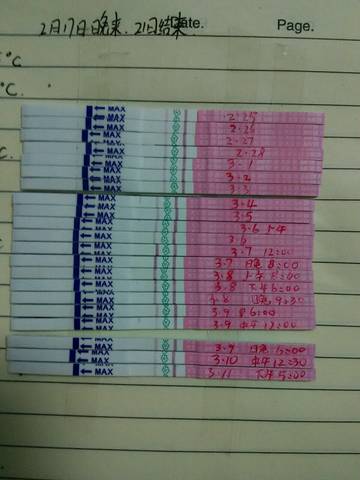 2月17日晚来. 21日结束 Date. Page.
°C
°C
C.
← MAX 2-25
← MAX 2-26
← MAX 2-27
← MAX 2-28
← MAX 3-1
← MAX 3-2
← MAX 3-3
← MAX 3.4
← MAX 3.5
← MAX 3.6 下午
← MAX 3.6
← MAX 3.7 12:00
← MAX 3.7 晚 8:00
← MAX 3.8 上午 8:00
← MAX 3.8 下午6:00
← MAX 3.8 晚 9:30
← MAX 3.9 6:00
← MAX 3.9 中午 12:00
← MAX 3.9 晚 6:00
← MAX 3.10 中午 12:30
← MAX 3.11 下午 5:00